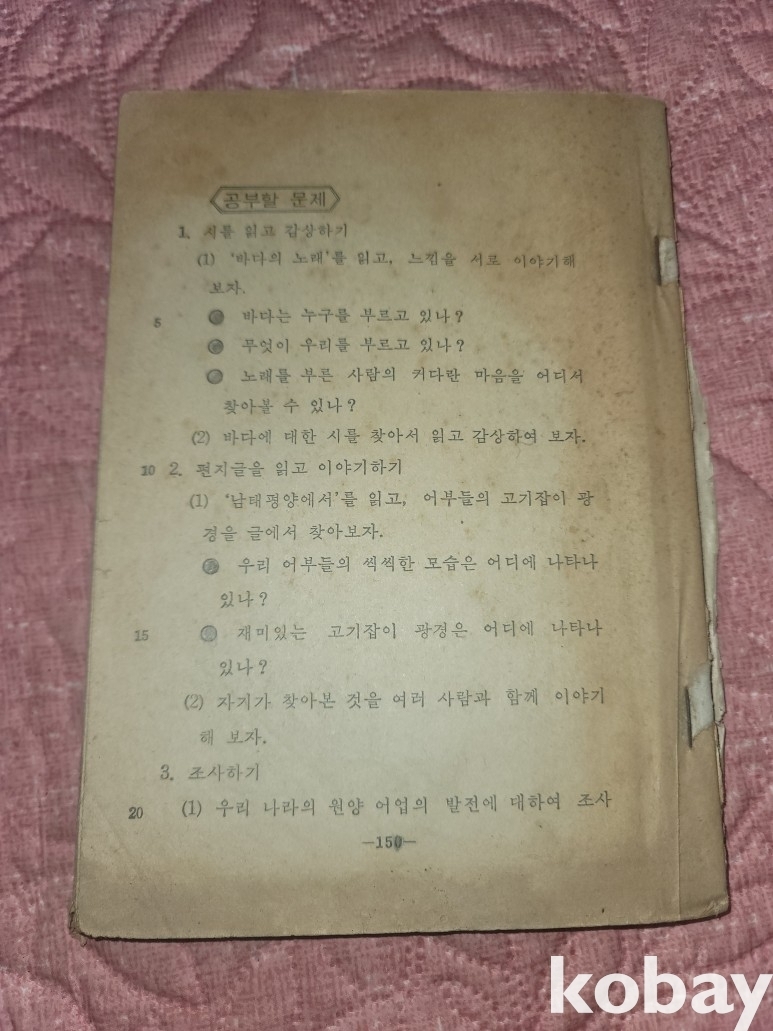 공부할 문제
1. 시를 읽고 감상하기
(1) '바다의 노래'를 읽고, 느낌을 서로 이야기해
보자.
5 ● 바다는 누구를 부르고 있나?
● 무엇이 우리를 부르고 있나?
● 노래를 부른 사람의 커다란 마음을 어디서
찾아볼 수 있나?
(2) 바다에 대한 시를 찾아서 읽고 감상하여 보자.
10 2. 편지글을 읽고 이야기하기
(1) '남태평양에서'를 읽고, 어부들의 고기잡이 광
경을 글에서 찾아보자.
● 우리 어부들의 씩씩한 모습은 어디에 나타나
있나?
15 ● 재미있는 고기잡이 광경은 어디에 나타나
있나?
(2) 자기가 찾아본 것을 여러 사람과 함께 이야기
해 보자.
3. 조사하기
20 (1) 우리 나라의 원양 어업의 발전에 대하여 조사
—150—
kobay